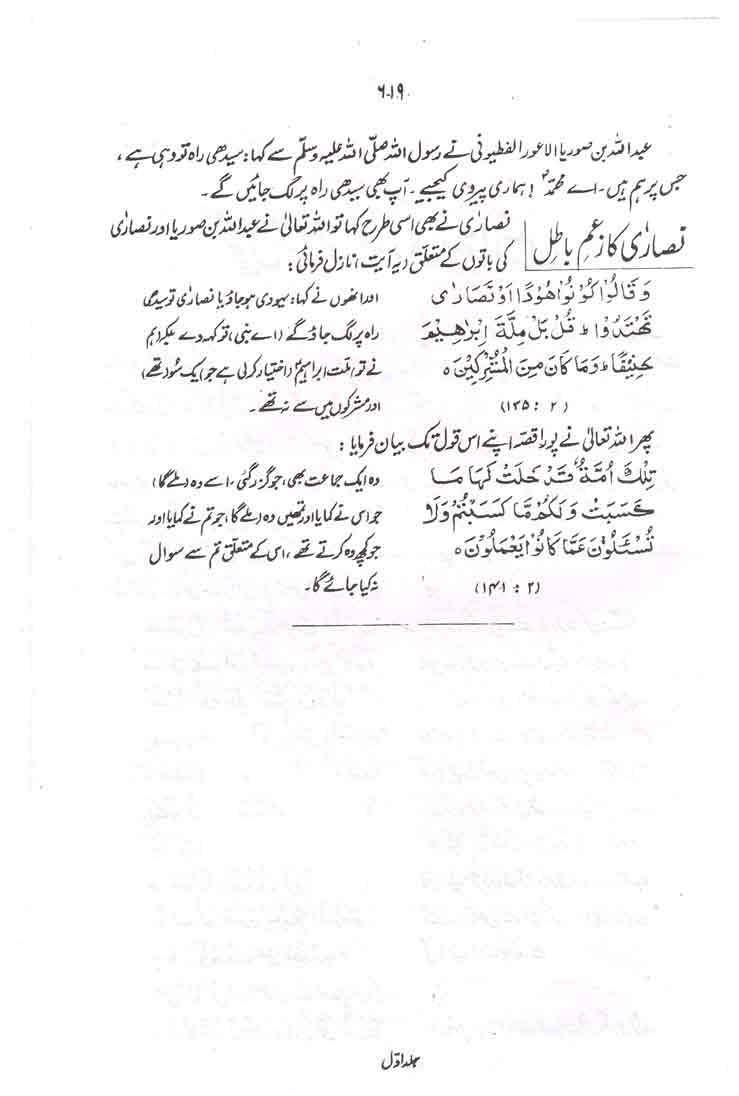 ۶۱۹
عبداللہ بن صوریا الاعور الفطیونی نے رسول اللہ صلی اللہ علیہ وسلّم سے کہا: سیدھی راہ تو وہی ہے،
جس پر ہم ہیں۔ اے محمدؐ! ہماری پیروی کیجیے۔ آپ بھی سیدھی راہ پر لگ جائیں گے۔
نصارٰی کا زعمِ باطل
نصارٰی نے بھی اسی طرح کہا تو اللہ تعالیٰ نے عبداللہ بن صوریا اور نصارٰی
کی باتوں کے متعلّق (یہ آیت) نازل فرمائی:
وَقَالُوْا كُوْنُوْا هُوْدًا اَوْ نَصَارٰى
تَهْتَدُوْا ط قُلْ بَلْ مِلَّةَ اِبْرَاهِيْمَ
حَنِيْفًا ط وَمَا كَانَ مِنَ الْمُشْرِكِيْنَ ہ
(۲ : ۱۳۵)
اور انھوں نے کہا: یہودی ہو جاؤ یا نصارٰی تو سیدھی
راہ پر لگ جاؤ گے (اے نبی) تو کہہ دے بلکہ (ہم
نے تو) ملت ابراہیمؑ (اختیار کر لی ہے جو) یک سُو (تھے)
اور مشرکوں میں سے نہ تھے۔
پھر اللہ تعالیٰ نے پورا قصّہ اپنے اس قول تک بیان فرمایا:
تِلْكَ اُمَّةٌ قَدْ خَلَتْ لَهَا مَا
كَسَبَتْ وَلَكُمْ مَّا كَسَبْتُمْ وَلَا
تُسْئَلُوْنَ عَمَّا كَانُوْا يَعْمَلُوْنَ ہ
(۲ : ۱۴۱)
وہ ایک جماعت تھی، جو گزر گئی، اسے وہ (ملے گا)
جو اس نے کمایا اور تمھیں وہ (ملے گا) جو تم نے کمایا اور
جو کچھ وہ کرتے تھے، اس کے متعلّق تم سے سوال
نہ کیا جائے گا۔
جلد اوّل